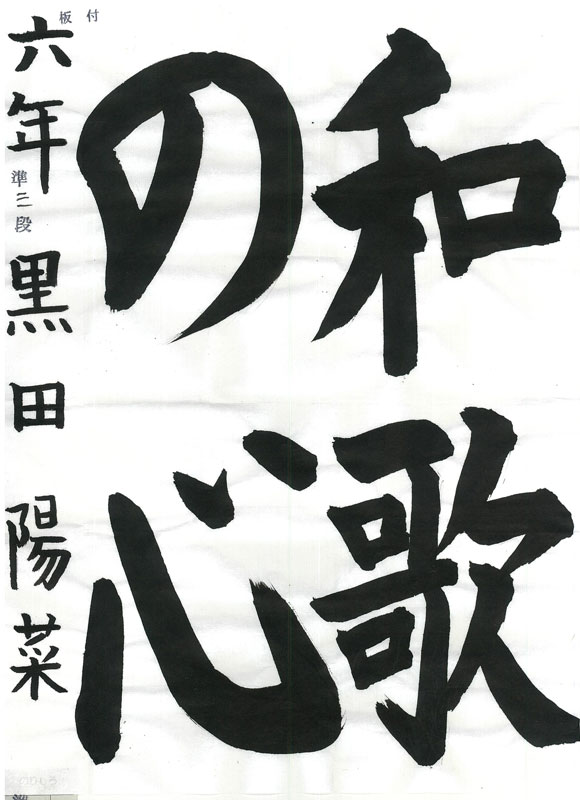 和歌
の心
六年 準三段 黒田 陽菜
板付